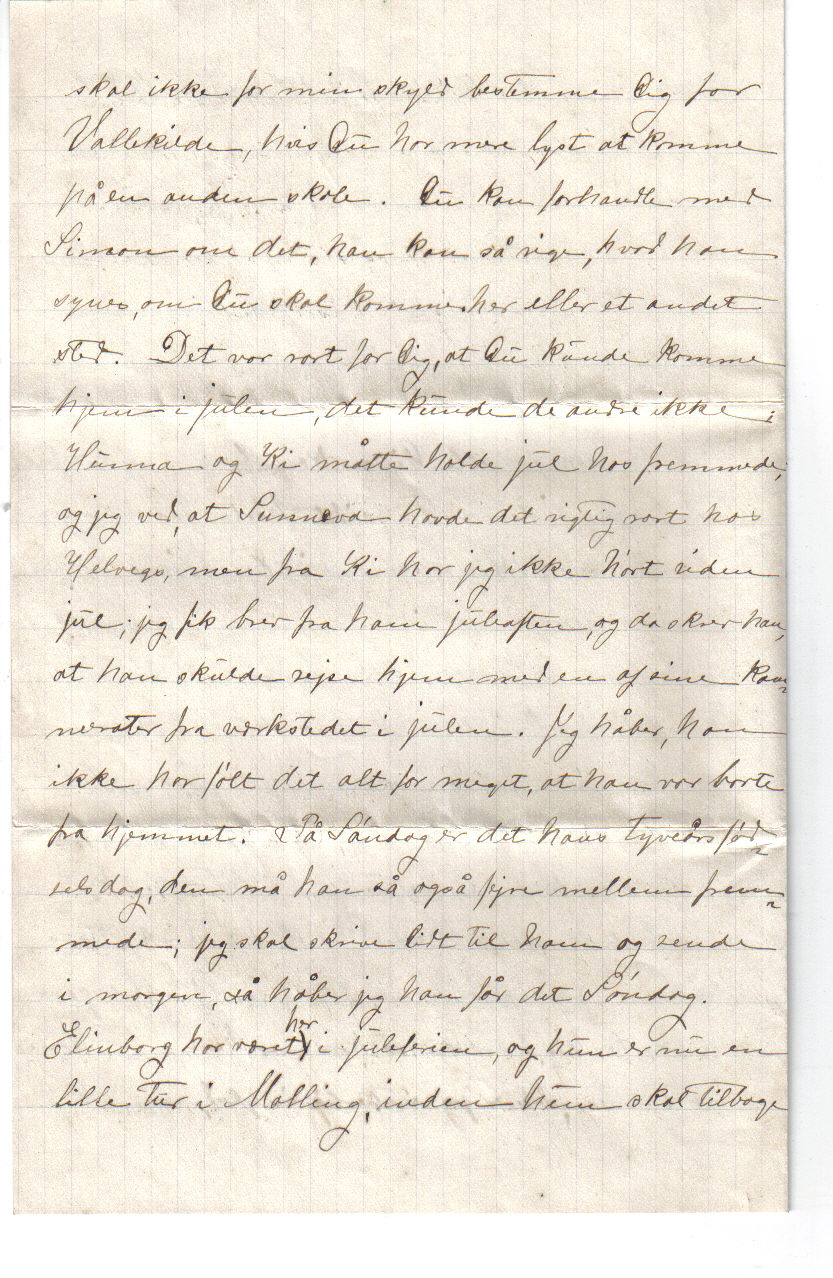 skal ikke for min skyld bestemme Dig for
Vallekilde, hvis Du har mere lyst at komme
på en anden skole. Du kan forhandle med
Simon om det, han kan så sige, hvad han
synes, om Du skal komme her eller et andet
sted. Det var rart for Dig, at Du kunde komme
hjem i julen, det kunde de andre ikke;
Hunna og Ki måtte holde jul hos fremmede,
og jeg ved, at Sunneva havde det rigtig rart hos
Helvegs, men fra Ki har jeg ikke hørt siden
jul; jeg fik brev fra ham juleaften, og da skrev han,
at han skulde rejse hjem med en af sine kam-
merater fra værkstedet i julen. Jeg håber, han
ikke har følt det alt for meget, at han var borte
fra hjemmet. På Søndag er det hans tyveårs fød-
selsdag, den må han så også fejre mellem frem-
mede; jeg skal skrive lidt til ham og sende
i morgen, så håber jeg han får det Søndag.
Elinborg har været her i juleferien, og hun er nu en
lille tur i Malling, inden hun skal tilbage